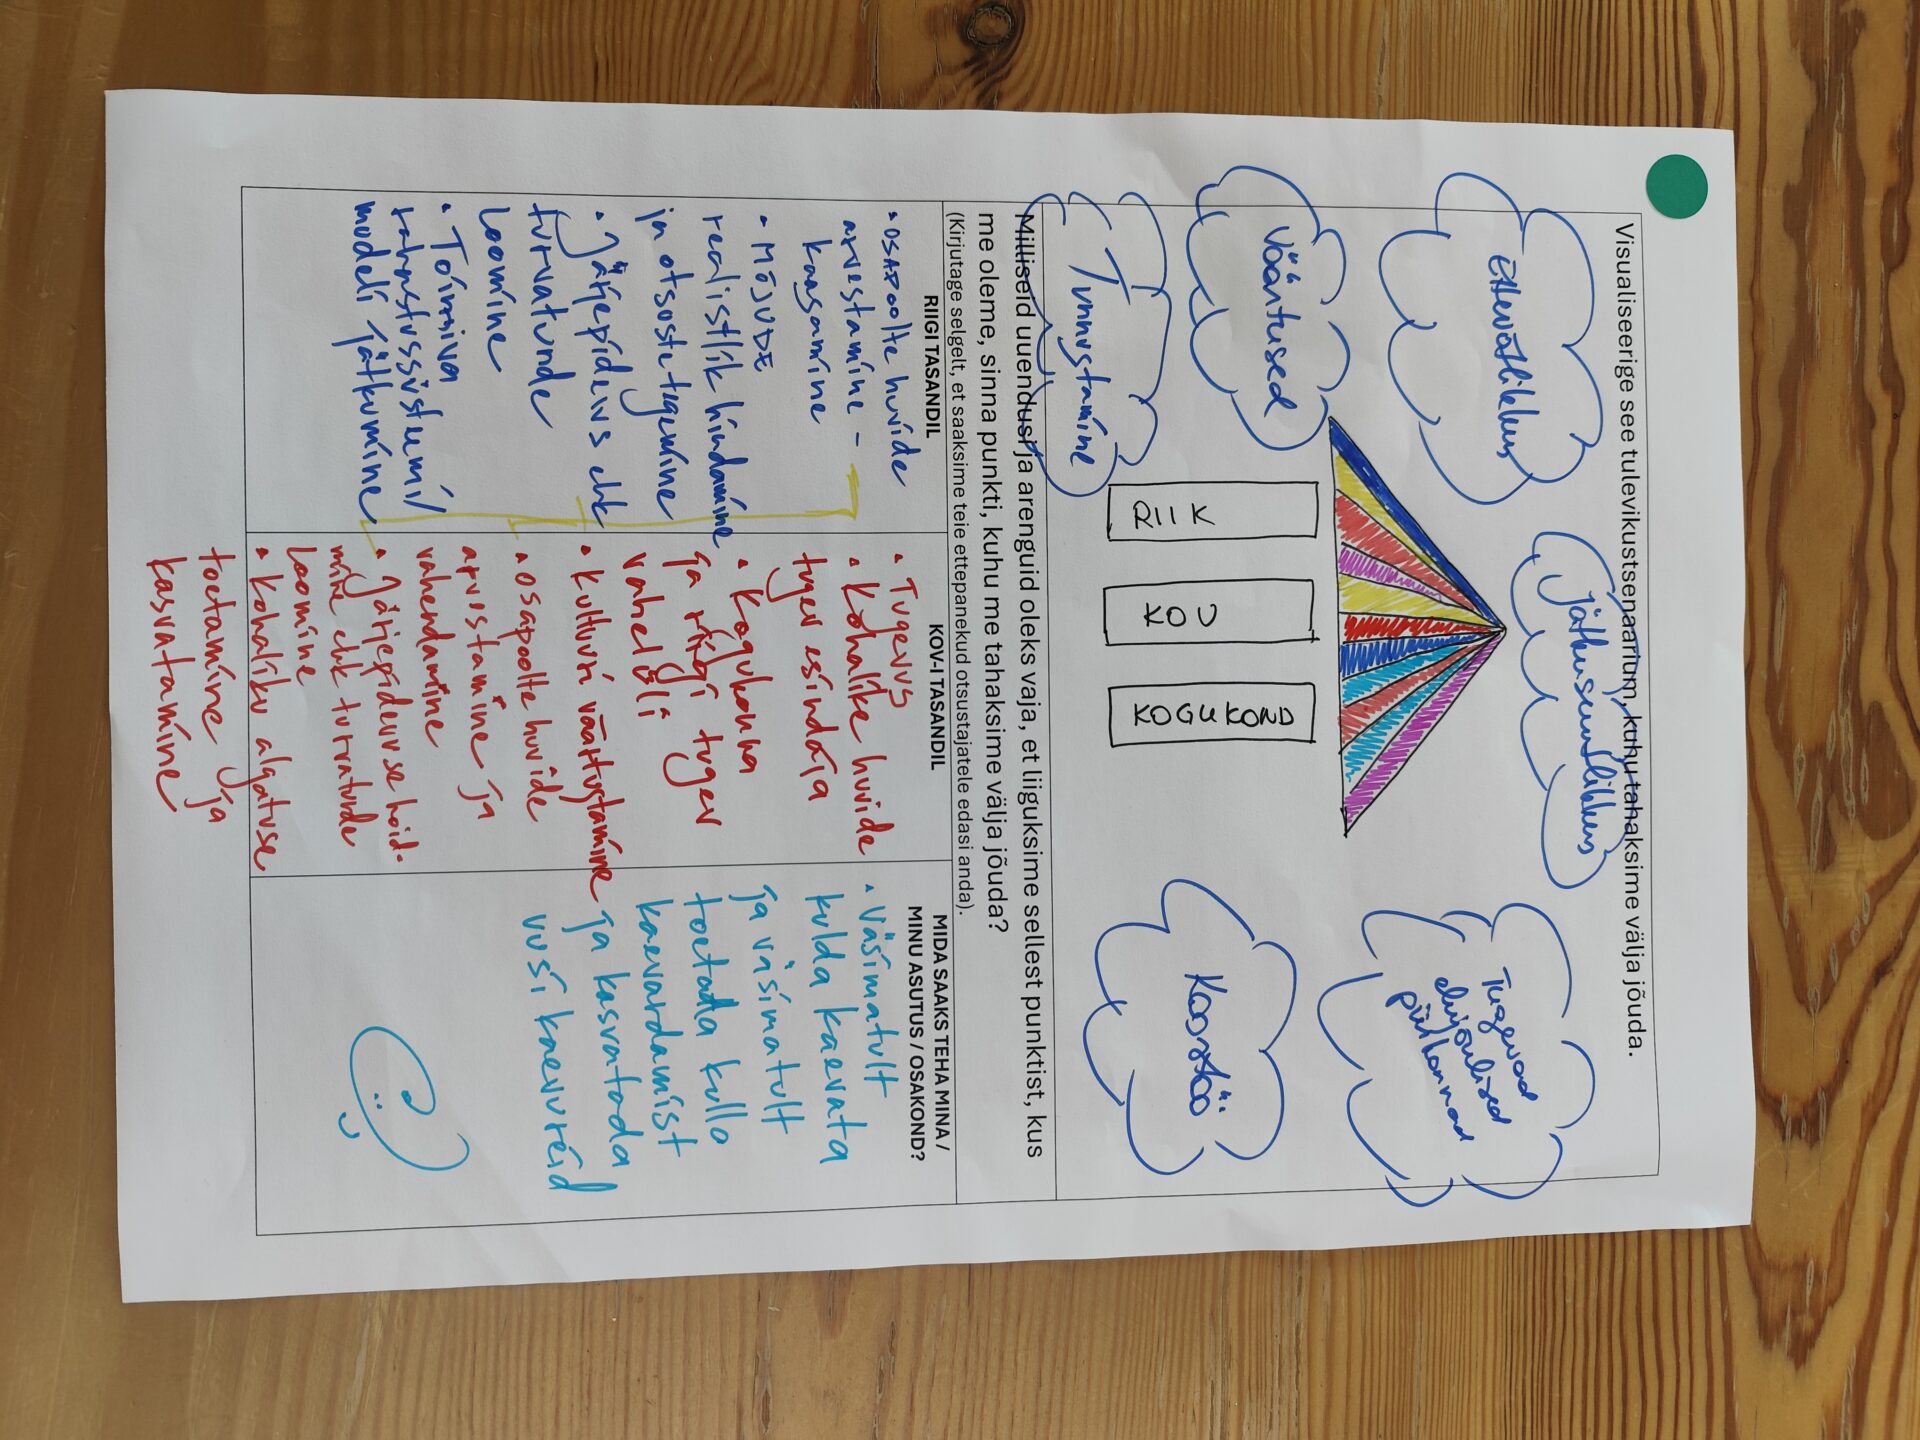 Visualiseerige see tulevikustsenaarium, kuhu tahaksime välja jõuda.
Ettevõtlikkus
jätkusuutlikkus
Tugevad
elujõulised
piirkonnad
Väärtused
Tunnustamine
Koostöö
RIIK
KOV
KOGUKOND
Milliseid uuendusi ja arenguid oleks vaja, et liiguksime sellest punktist, kus
me oleme, sinna punkti, kuhu me tahaksime välja jõuda?
(Kirjutage selgelt, et saaksime teie ettepanekud otsustajatele edasi anda).
RIIGI TASANDIL
• OSAPOOLTE huvide
arvestamine -
kaasamine
• MÕJUDE
realistlik hindamine
ja otsuste tegemine
• Järjepidevus ehk
turvatunde
Loomine
• Toimiva
rahastussüsteemi/
mudeli jätkumine
KOV-I TASANDIL
• Tugevus
• Kohalike huvide
tugev esindaja
• Kogukonna
ja riigi tugev
vahelüli
• Kultuuri väärtustamine
• OSAPOOLTE huvide
arvestamine ja
vahendamine
• Järjepidevuse hoid-
mine ehk turvatunde
Loomine
• Kohaliku algatuse
toetamine ja
kasvatamine
MIDA SAAKS TEHA MINA /
MINU ASUTUS / OSAKOND?
• Väsimatult
kulda kaevata
ja väsimatult
toetada kulla
kaevandamist
ja kasvatada
uusi kaevureid